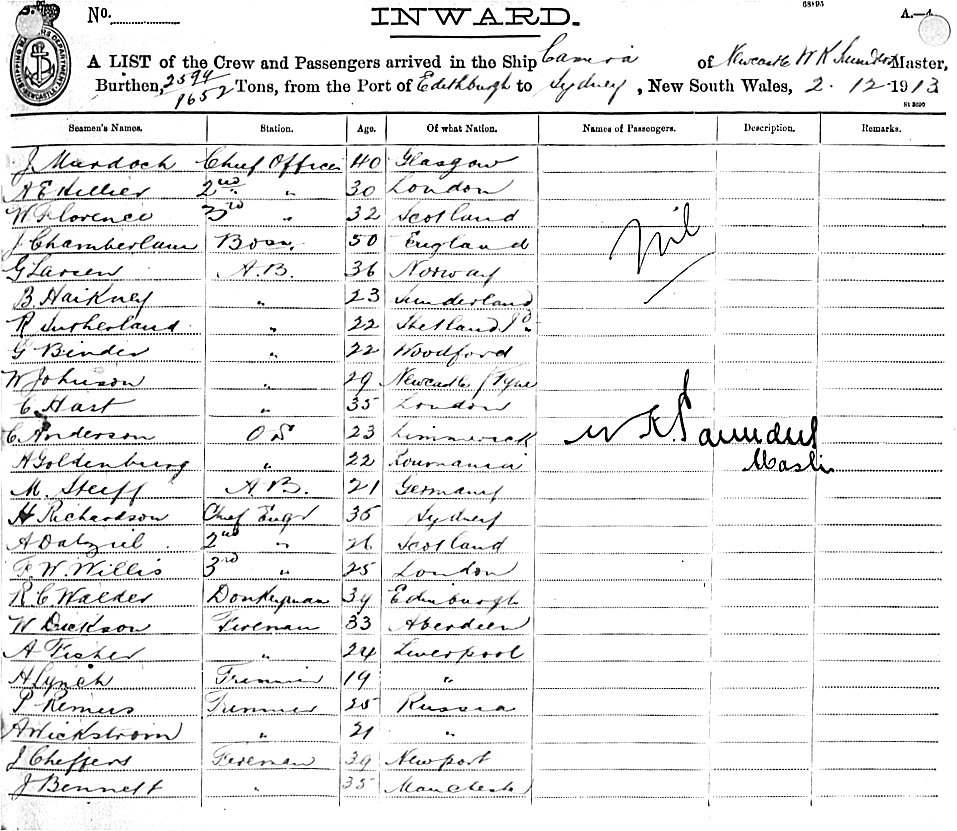 68495
No. INWARD. A.—4.
A LIST of the Crew and Passengers arrived in the Ship of Newcastle W K Saunders Master,
Burthen, 2594/1652 Tons, from the Port of Edithburgh to Sydney, New South Wales, 2-12-1913
St 3696
Seamen's Names. Station. Age. Of what Nation. Names of Passengers. Description. Remarks.
J Murdoch Chief Officer 40 Glasgow
A E Hillier 2nd " 30 London
W Florence 3rd " 32 Scotland
J Chamberlain Bosn. 50 England
nil
G Larsen A.B. 36 Norway
B. Haikney " 23 Sunderland
R Sutherland " 22 Shetland Is
G Binder " 22 Woodford
W Johnson " 29 Newcastle /Tyne
C. Hart " 35 London
C. Anderson O S 23 Limmerick W K Saunders
A Goldenburg " 22 Roumania Master
M. Steiff A.B. 21 Germany
H Richardson Chief Engr 35 Sydney
A Dalziel 2nd " 26 Scotland
F. W. Willis 3rd " 25 London
R. C. Walder Donkeyman 39 Edinburgh
W Dickson Fireman 33 Aberdeen
A Fisher " 24 Liverpool
H Lynch Trimmer 19 "
P Remers Trimmer 25 Russia
A Wickstrom " 21 "
J Cheffers Fireman 39 Newport
J Bennett " 35 Manchester